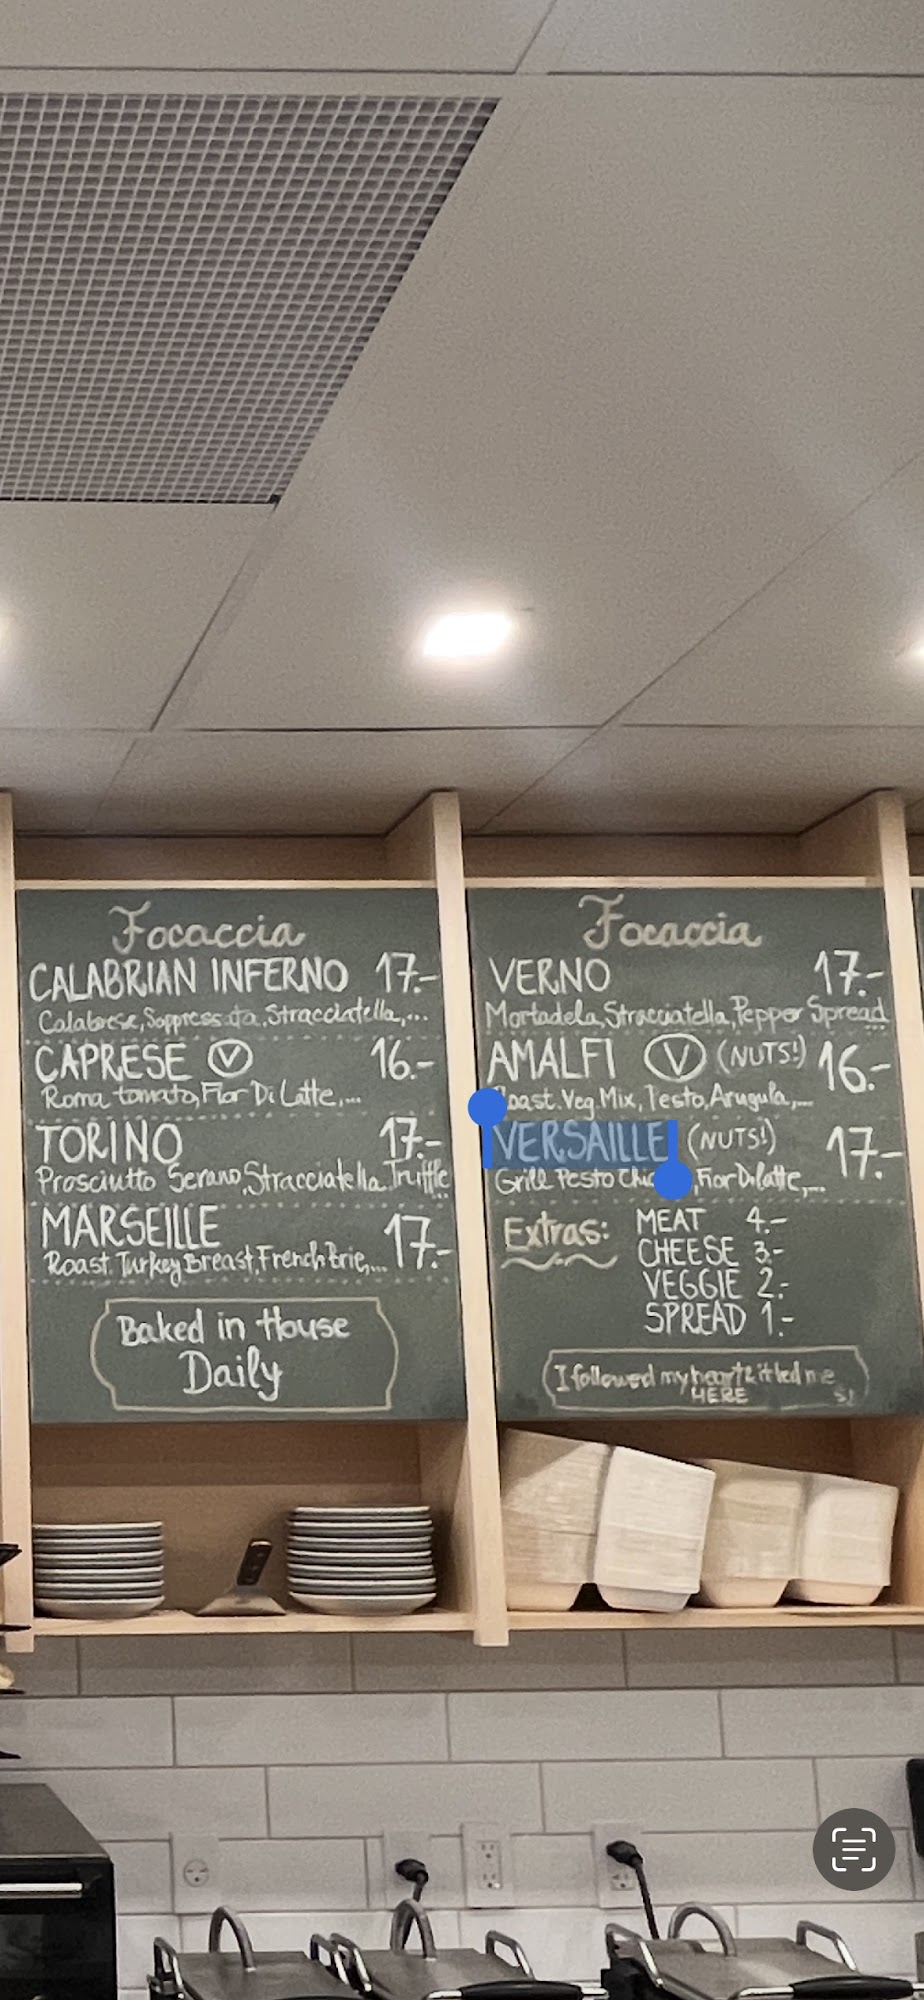 Focaccia
CALABRIAN INFERNO 17.-
Calabrese, Soppressata, Stracciatella,...
CAPRESE V 16.-
Roma tomato, Fior Di Latte,...
TORINO 17.-
Prosciutto Serano, Stracciatella. Truffle
MARSEILLE 17.-
Roast. Turkey Breast, French Brie,...
Baked in House
Daily
Focaccia
VERNO 17.-
Mortadela, Stracciatella, Pepper Spread
AMALFI V (NUTS!) 16.-
Roast. Veg. Mix, Pesto, Arugula,...
VERSAILLE (NUTS!) 17.-
Grill Pesto , Fior Di latte,...
Extras: MEAT 4.-
CHEESE 3.-
VEGGIE 2.-
SPREAD 1.-
I followed my heart & it led me
HERE